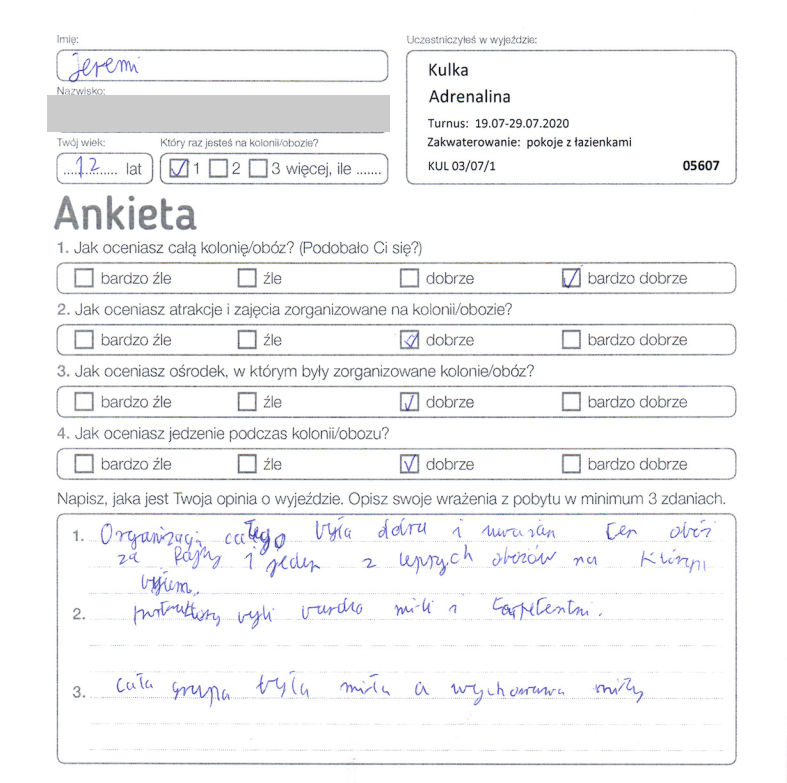 Imię:
Jeremi
Nazwisko:
Twój wiek:
12 lat
Który raz jesteś na kolonii/obozie?
1 2 3 więcej, ile .......
Uczestniczyłeś w wyjeździe:
Kulka
Adrenalina
Turnus: 19.07-29.07.2020
Zakwaterowanie: pokoje z łazienkami
KUL 03/07/1 05607
Ankieta
1. Jak oceniasz całą kolonię/obóz? (Podobało Ci się?)
bardzo źle źle dobrze bardzo dobrze
2. Jak oceniasz atrakcje i zajęcia zorganizowane na kolonii/obozie?
bardzo źle źle dobrze bardzo dobrze
3. Jak oceniasz ośrodek, w którym były zorganizowane kolonie/obóz?
bardzo źle źle dobrze bardzo dobrze
4. Jak oceniasz jedzenie podczas kolonii/obozu?
bardzo źle źle dobrze bardzo dobrze
Napisz, jaka jest Twoja opinia o wyjeździe. Opisz swoje wrażenia z pobytu w minimum 3 zdaniach.
1. całego była i ten obóz
za fajny i jeden z obozów na
2. byli bardzo mili i
3. cała grupa była miła a miły